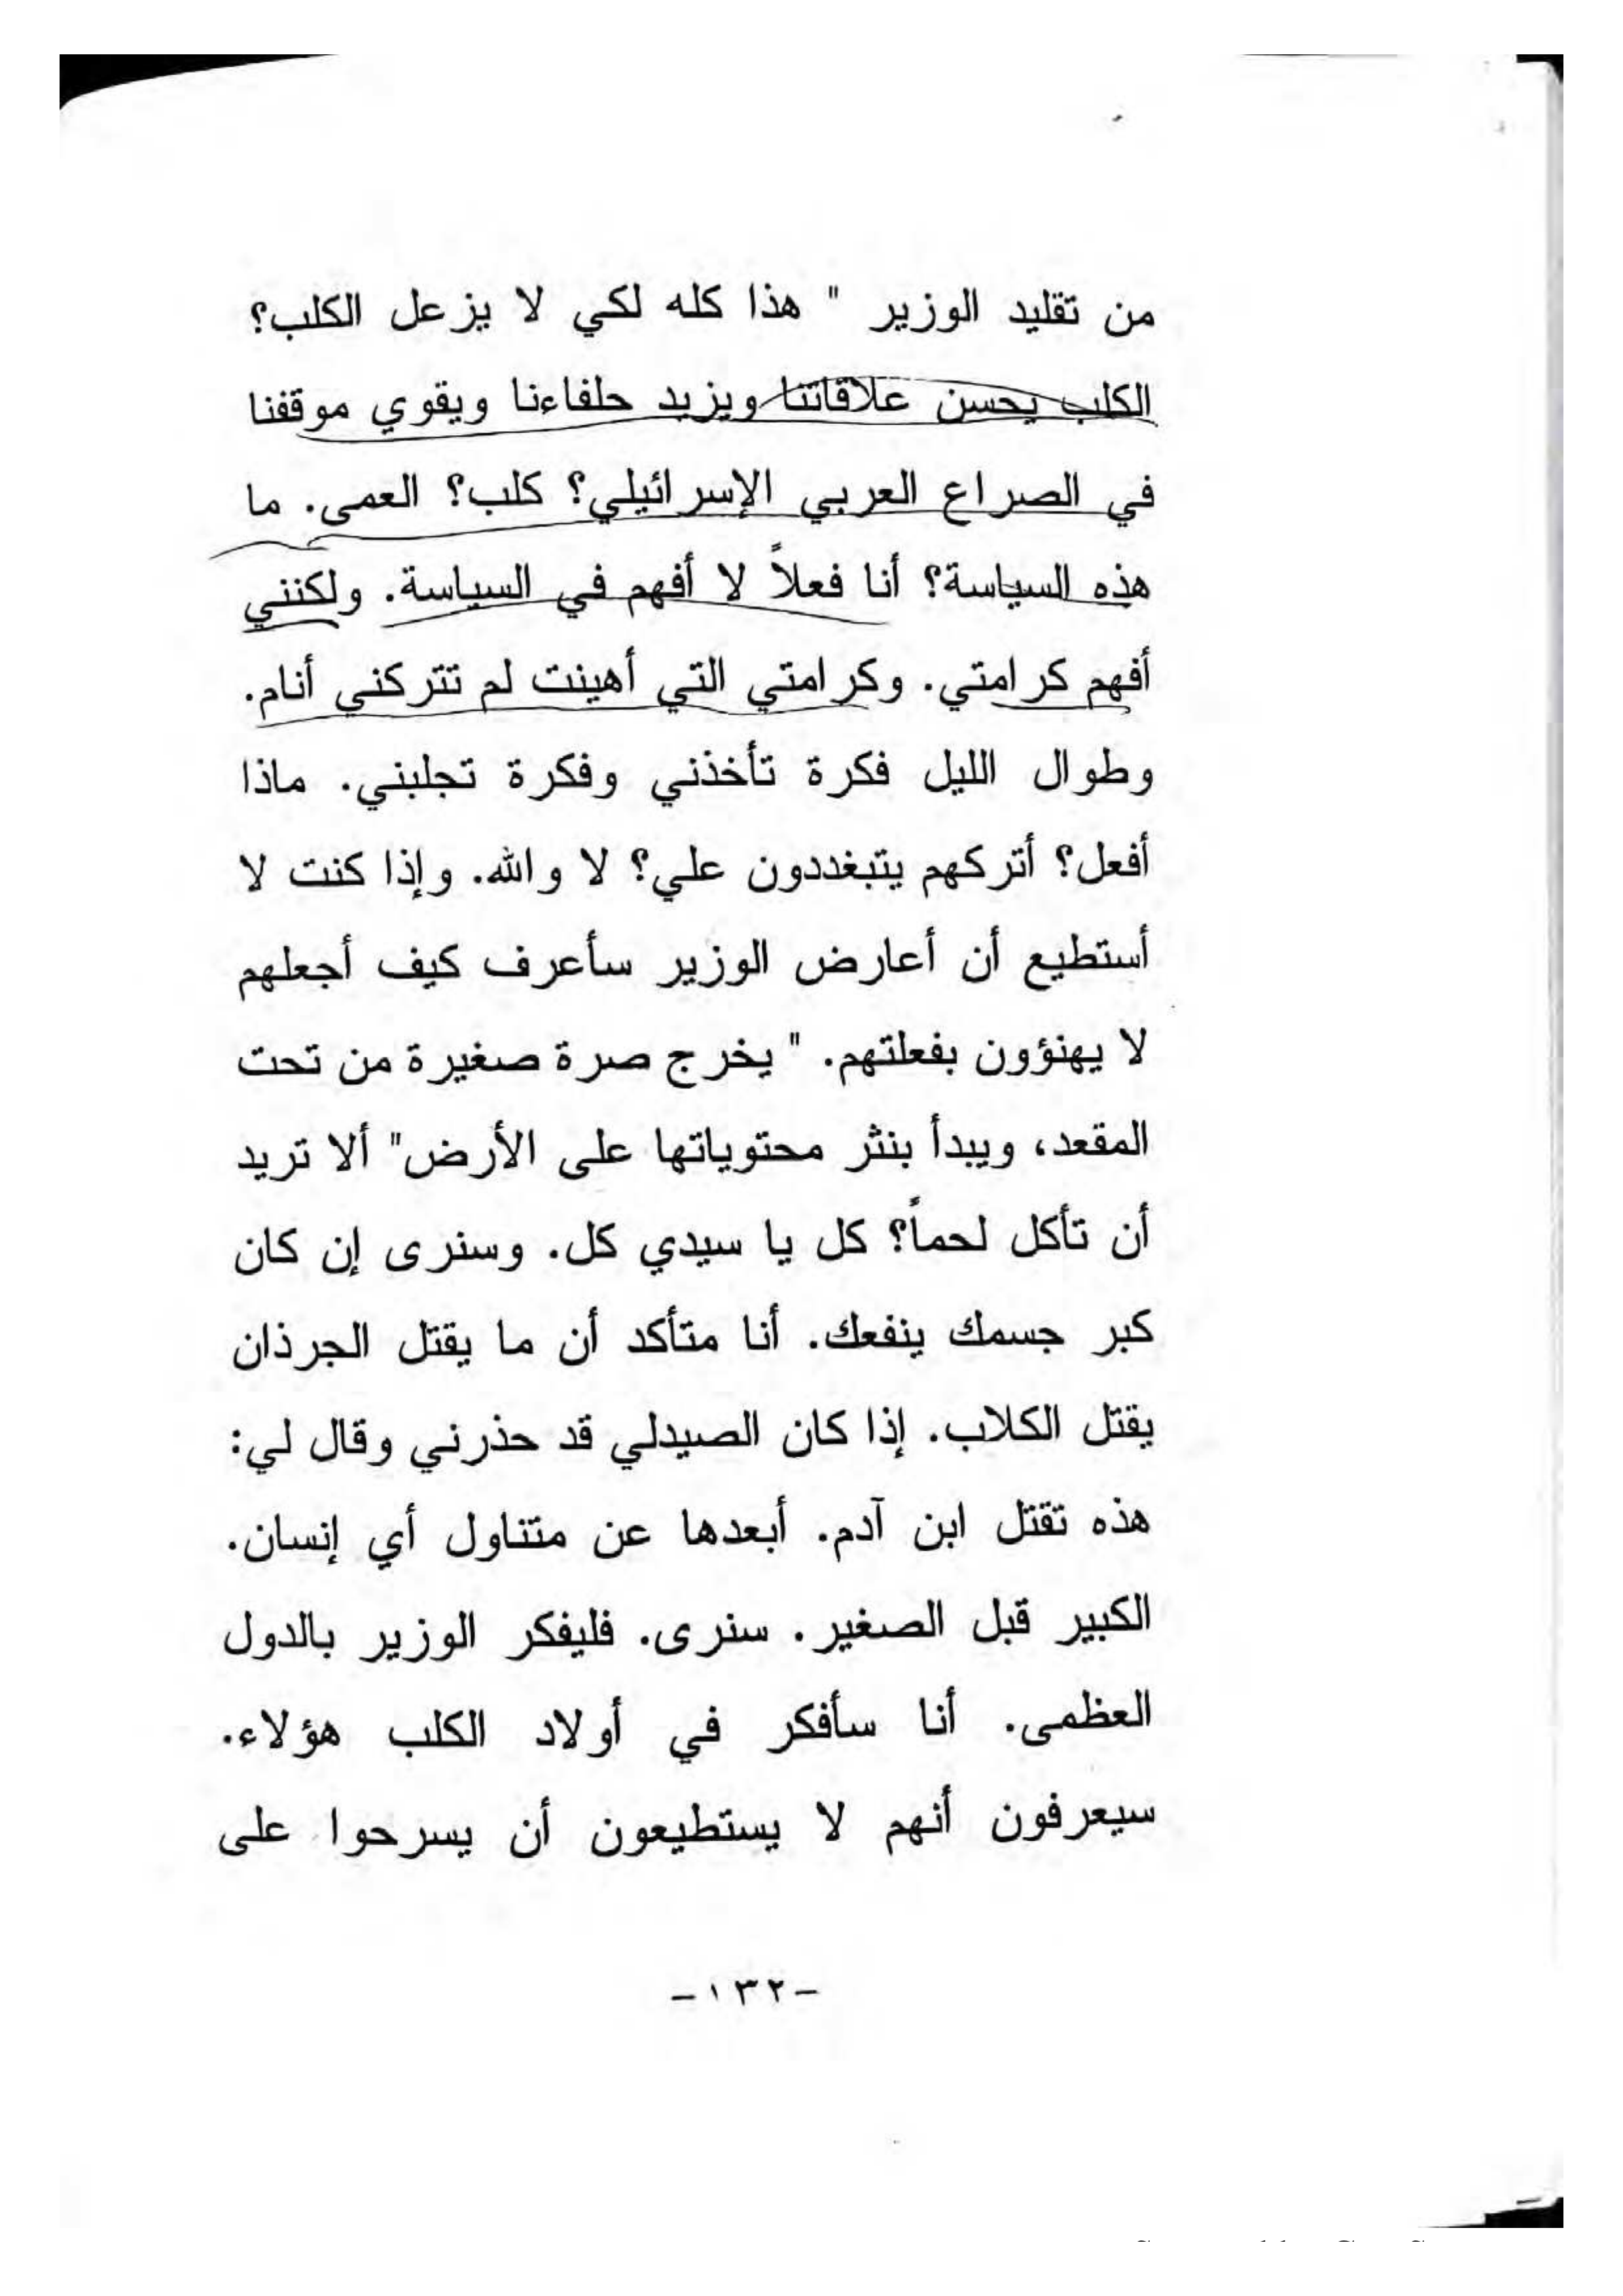 من تقليد الوزير " هذا كله لكي لا يزعل الكلب؟
الكلب يحسن علاقاتنا ويزيد حلفاءنا ويقوي موقفنا
في الصراع العربي الإسرائيلي؟ كلب؟ العمى. ما
هذه السياسة؟ أنا فعلاً لا أفهم في السياسة. ولكنني
أفهم كرامتي. وكرامتي التي أهينت لم تتركني أنام.
وطوال الليل فكرة تأخذني وفكرة تجلبني. ماذا
أفعل؟ أتركهم يتبغددون علي؟ لا والله. وإذا كنت لا
أستطيع أن أعارض الوزير سأعرف كيف أجعلهم
لا يهنؤون بفعلتهم. " يخرج صرة صغيرة من تحت
المقعد، ويبدأ بنثر محتوياتها على الأرض" ألا تريد
أن تأكل لحماً؟ كل يا سيدي كل. وسنرى إن كان
كبر جسمك ينفعك. أنا متأكد أن ما يقتل الجرذان
يقتل الكلاب. إذا كان الصيدلي قد حذرني وقال لي:
هذه تقتل ابن آدم. أبعدها عن متناول أي إنسان.
الكبير قبل الصغير. سنرى. فليفكر الوزير بالدول
العظمى. أنا سأفكر في أولاد الكلب هؤلاء.
سيعرفون أنهم لا يستطيعون أن يسرحوا على
-١٣٢-